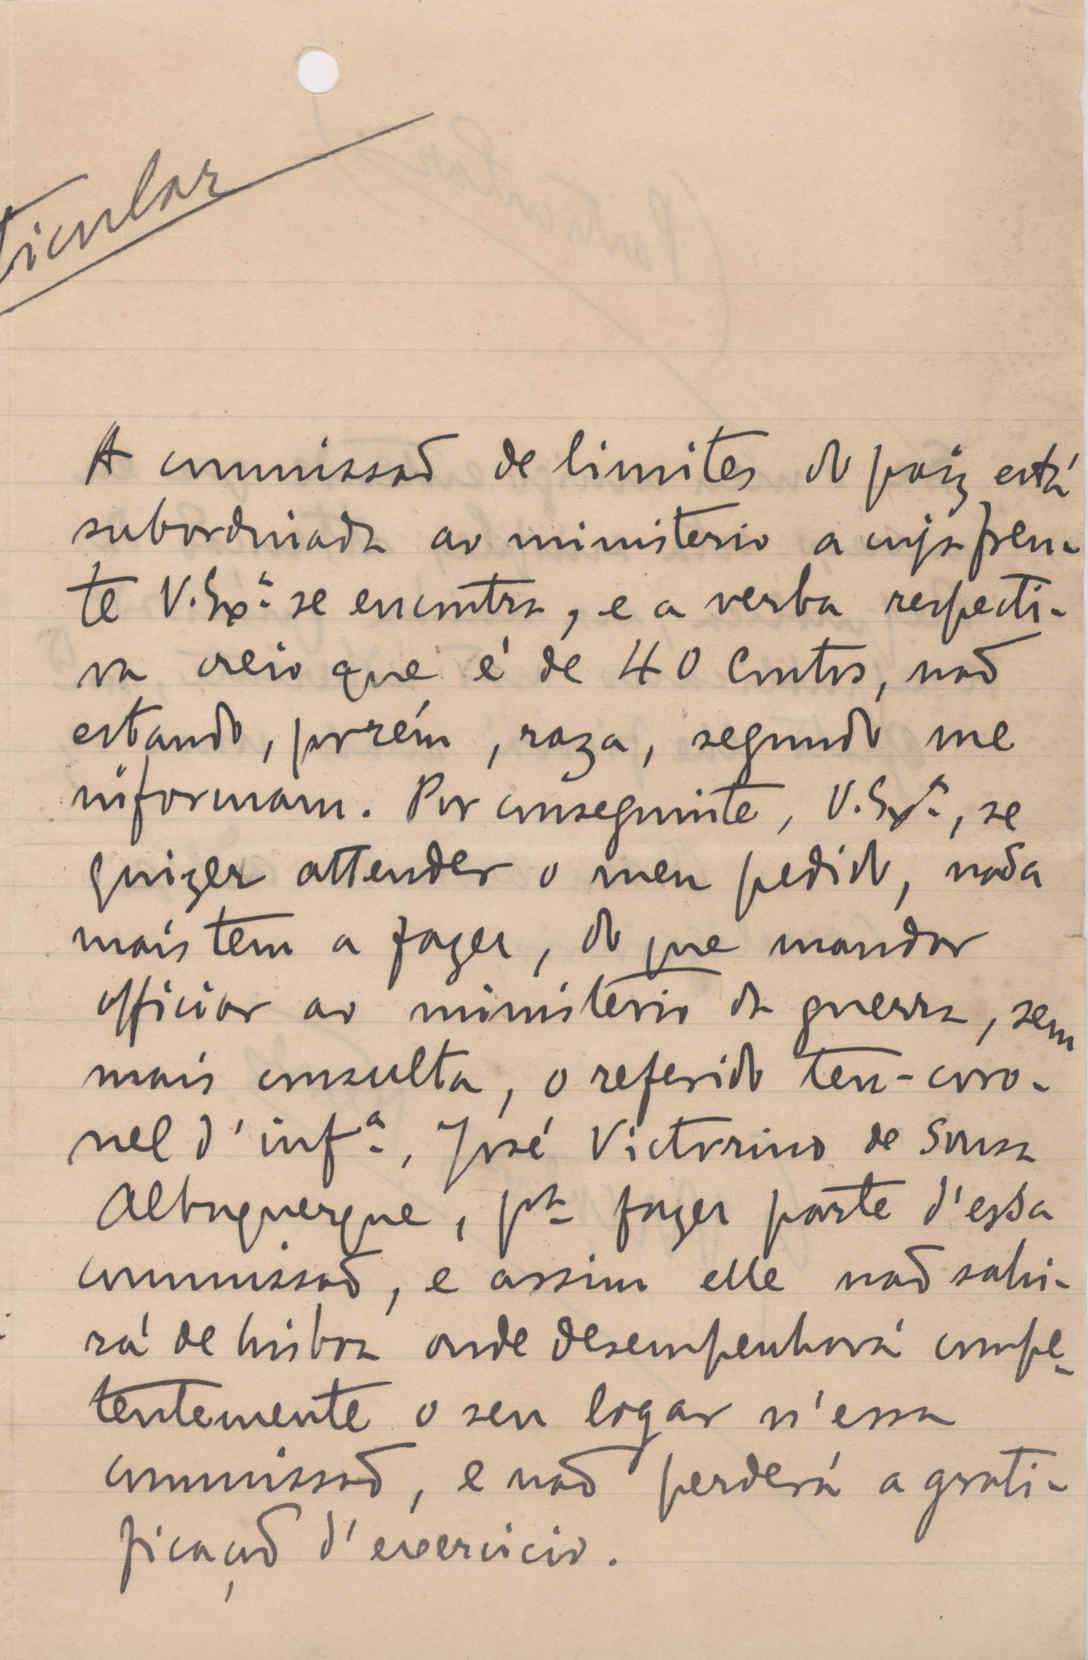 ticular
A commissão de limites do paiz está
subordinada ao ministerio a cuja fren-
te V. Exª se encontra, e a verba respecti-
va creio que é de 40 Contos, não
estando, porém, raza, segundo me
informam. Por conseguinte, V. Exª, se
quizer attender o meu pedido, nada
mais tem a fazer, do que mandar
officiar ao ministério da guerra, sem
mais consulta, o referido ten-coro-
nel d'infª, José Victorino de Sousa
Albuquerque, pª fazer parte d'essa
commissão, e assim elle não sahi-
rá de Lisboa onde desempenhará compe-
tentemente o seu logar n'essa
commissão, e não perderá a grati-
ficação d'exercicio.